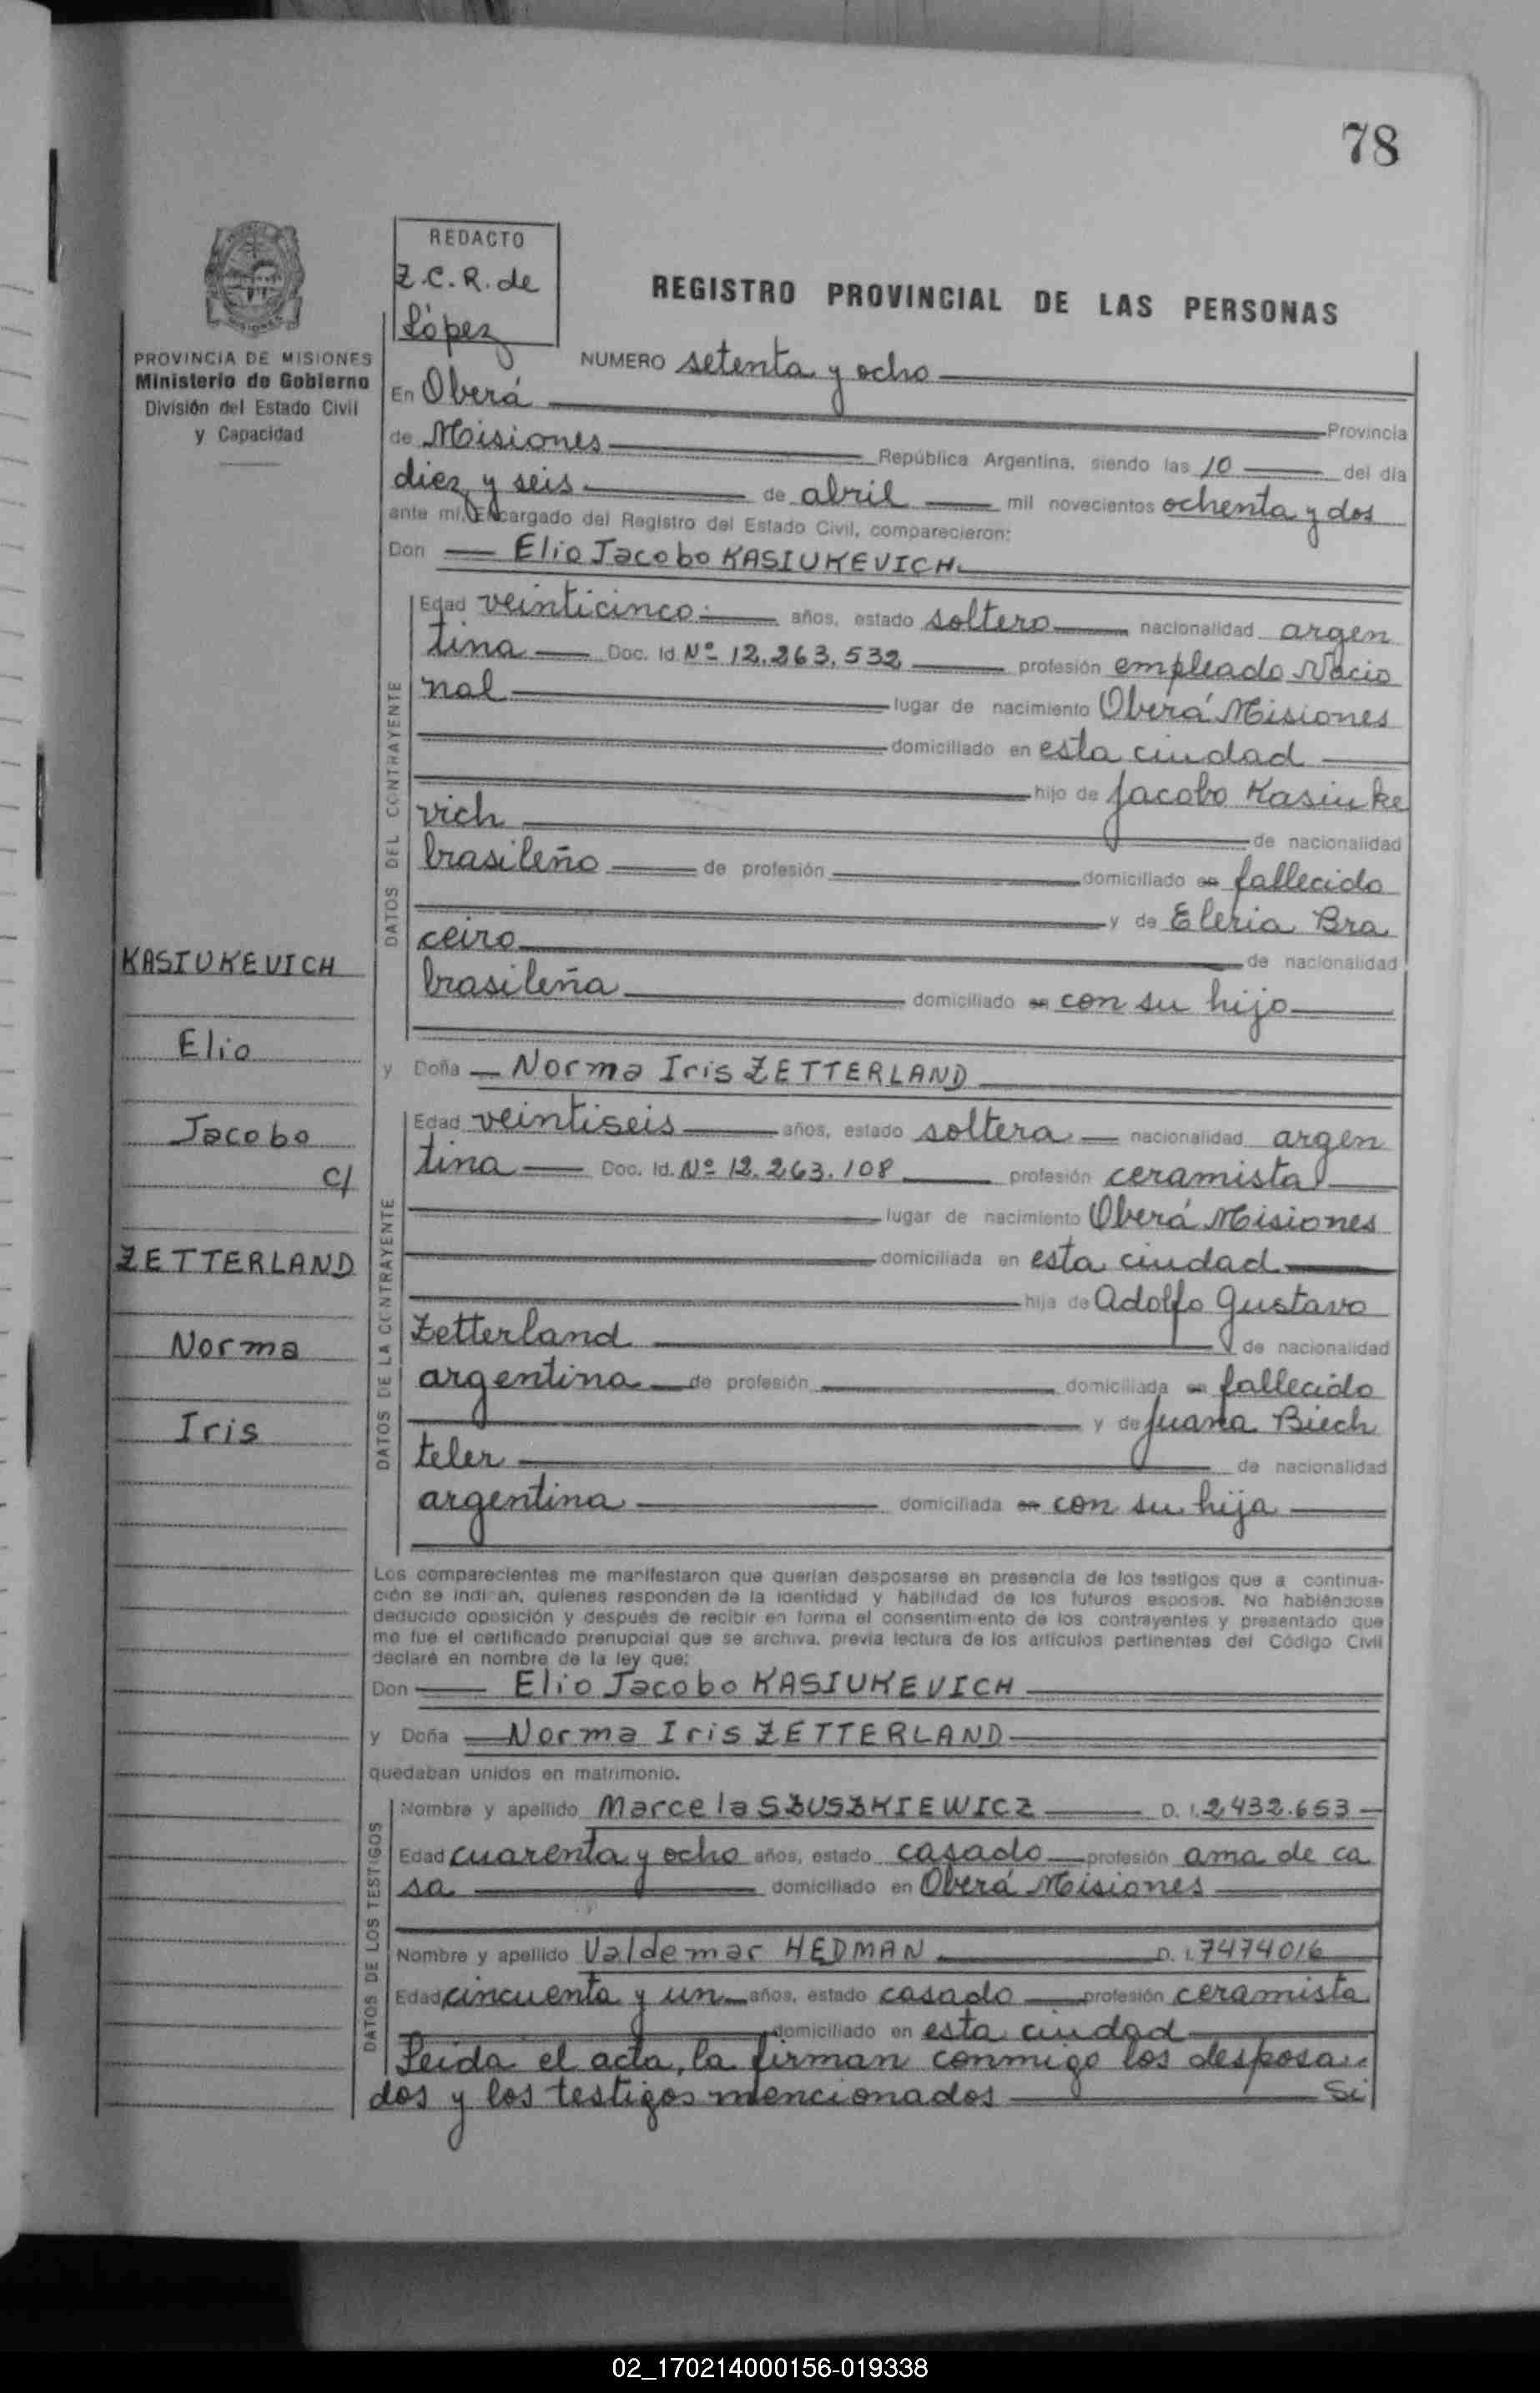 78
REDACTO
Z.C.R. de
López
REGISTRO PROVINCIAL DE LAS PERSONAS
PROVINCIA DE MISIONES
Ministerio de Gobierno
División del Estado Civil
y Capacidad
NUMERO setenta y ocho
En Oberá
Provincia
de Misiones República Argentina, siendo las 10 del día
diez y seis de abril mil novecientos ochenta y dos
ante mi, Encargado del Registro del Estado Civil, comparecieron:
Don Elio Jacobo KASIUKEVICH
DATOS DEL CONTRAYENTE
Edad veinticinco años, estado soltero nacionalidad argen
tina Doc. Id. Nº 12.263.532 profesión empleado Nacio
nal lugar de nacimiento Oberá Misiones
domiciliado en esta ciudad
hijo de Jacobo Kasiuke
vich de nacionalidad
brasileño de profesión domiciliado en fallecido
y de Eleria Bra
ceiro de nacionalidad
brasileña domiciliado en con su hijo
y Doña Norma Iris ZETTERLAND
DATOS DE LA CONTRAYENTE
Edad veintiseis años, estado soltera nacionalidad argen
tina Doc. Id. Nº 12.263.108 profesión ceramista
lugar de nacimiento Oberá Misiones
domiciliada en esta ciudad
hija de Adolfo Gustavo
Zetterland de nacionalidad
argentina de profesión domiciliada en fallecido
y de Juana Biech
teler de nacionalidad
argentina domiciliada en con su hija
KASIUKEVICH
Elio
Jacobo
c/
ZETTERLAND
Norma
Iris
Los comparecientes me manifestaron que querían desposarse en presencia de los testigos que a continua-
ción se indi an, quienes responden de la identidad y habilidad de los futuros esposos. No habiéndose
deducido oposición y después de recibir en forma el consentim ento de los contrayentes y presentado que
me fue el certificado prenupcial que se archiva, previa lectura de los artículos pertinentes del Código Civil
declaré en nombre de la ley que:
Don Elio Jacobo KASIUKEVICH
y Doña Norma Iris ZETTERLAND
quedaban unidos en matrimonio.
DATOS DE LOS TESTIGOS
Nombre y apellido Marcela SZUSZKIEWICZ D. I. 2.432.653
Edad cuarenta y ocho años, estado casado profesión ama de ca
sa domiciliado en Oberá Misiones
Nombre y apellido Valdemar HEDMAN D. I. 7474016
Edad cincuenta y un años, estado casado profesión ceramista
domiciliado en esta ciudad
Leida el acta, la firman conmigo los desposa..
dos y los testigos mencionados Si
02_170214000156-019338